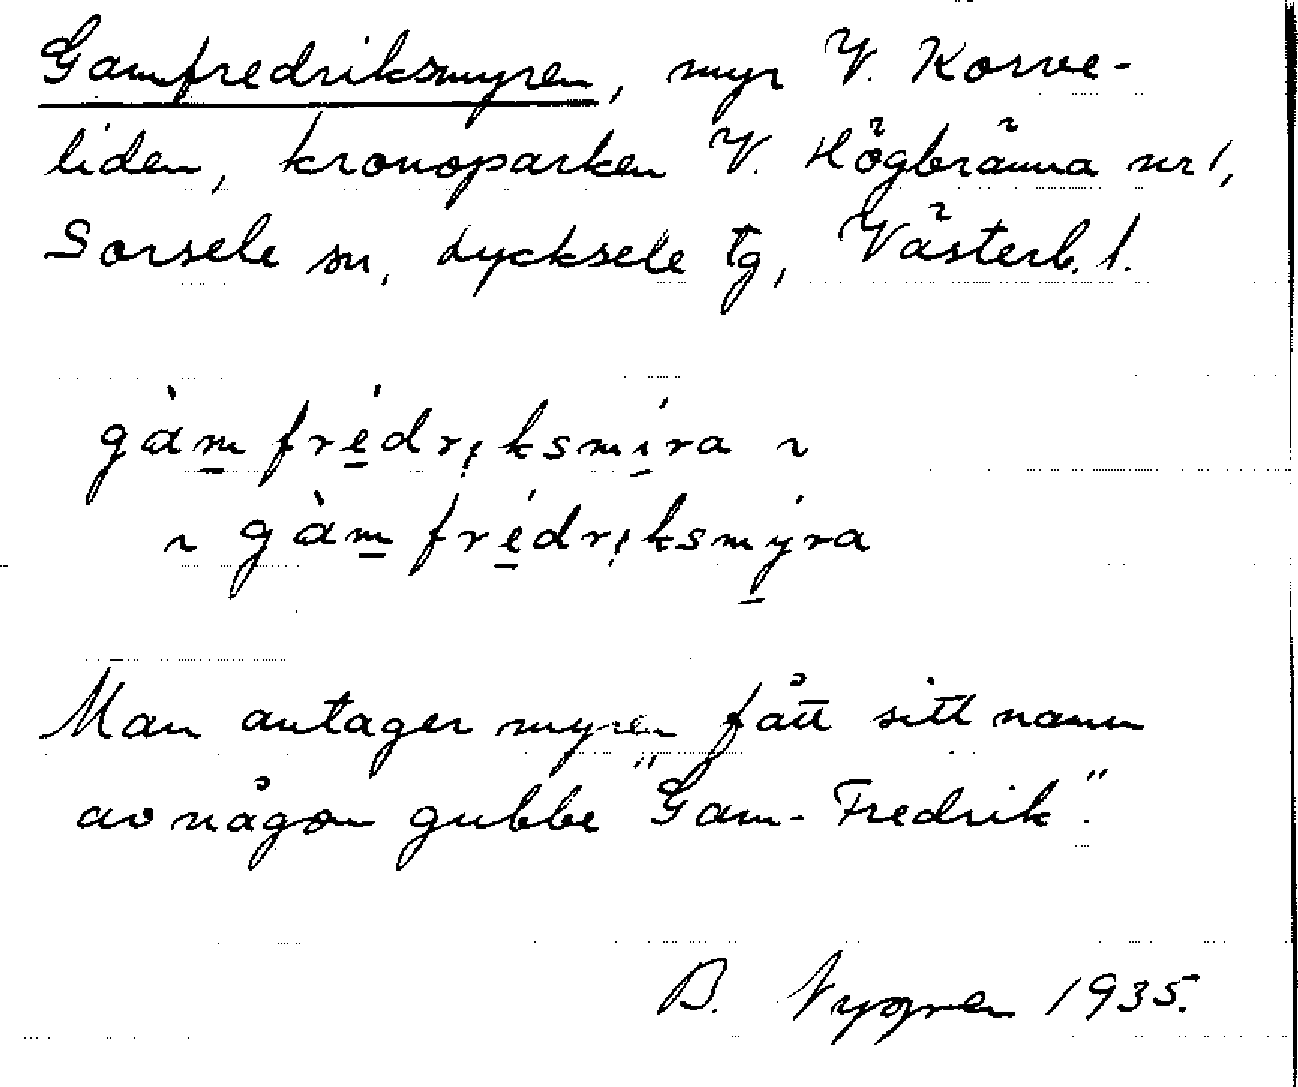 Gamfredriksmyren, myr V. Korve-
liden, kronoparken V. Högbränna nr 1,
Sorsele sn, Lycksele tg, Västerb. l.
gàm frédrı̣ksmíra ~
~ gàm frédrı̣ksmýra
Man antager myren fått sitt namn
av någon gubbe "Gam-Fredrik".
B. Nygren 1935.